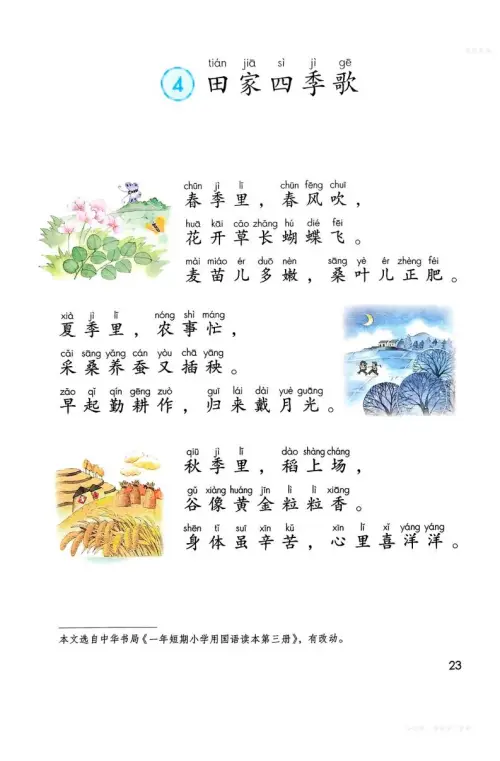 tián jiā sì jì gē
4 田家四季歌
chūn jì lǐ chūn fēng chuī
春季里，春风吹，
huā kāi cǎo zhǎng hú dié fēi
花开草长蝴蝶飞。
mài miáo ér duō nèn sāng yè ér zhèng féi
麦苗儿多嫩，桑叶儿正肥。
xià jì lǐ nóng shì máng
夏季里，农事忙，
cǎi sāng yǎng cán yòu chā yāng
采桑养蚕又插秧。
zǎo qǐ qín gēng zuò guī lái dài yuè guāng
早起勤耕作，归来戴月光。
qiū jì lǐ dào shàng cháng
秋季里，稻上场，
gǔ xiàng huáng jīn lì lì xiāng
谷像黄金粒粒香。
shēn tǐ suī xīn kǔ xīn lǐ xǐ yáng yáng
身体虽辛苦，心里喜洋洋。
本文选自中华书局《一年短期小学用国语读本第三册》，有改动。
23